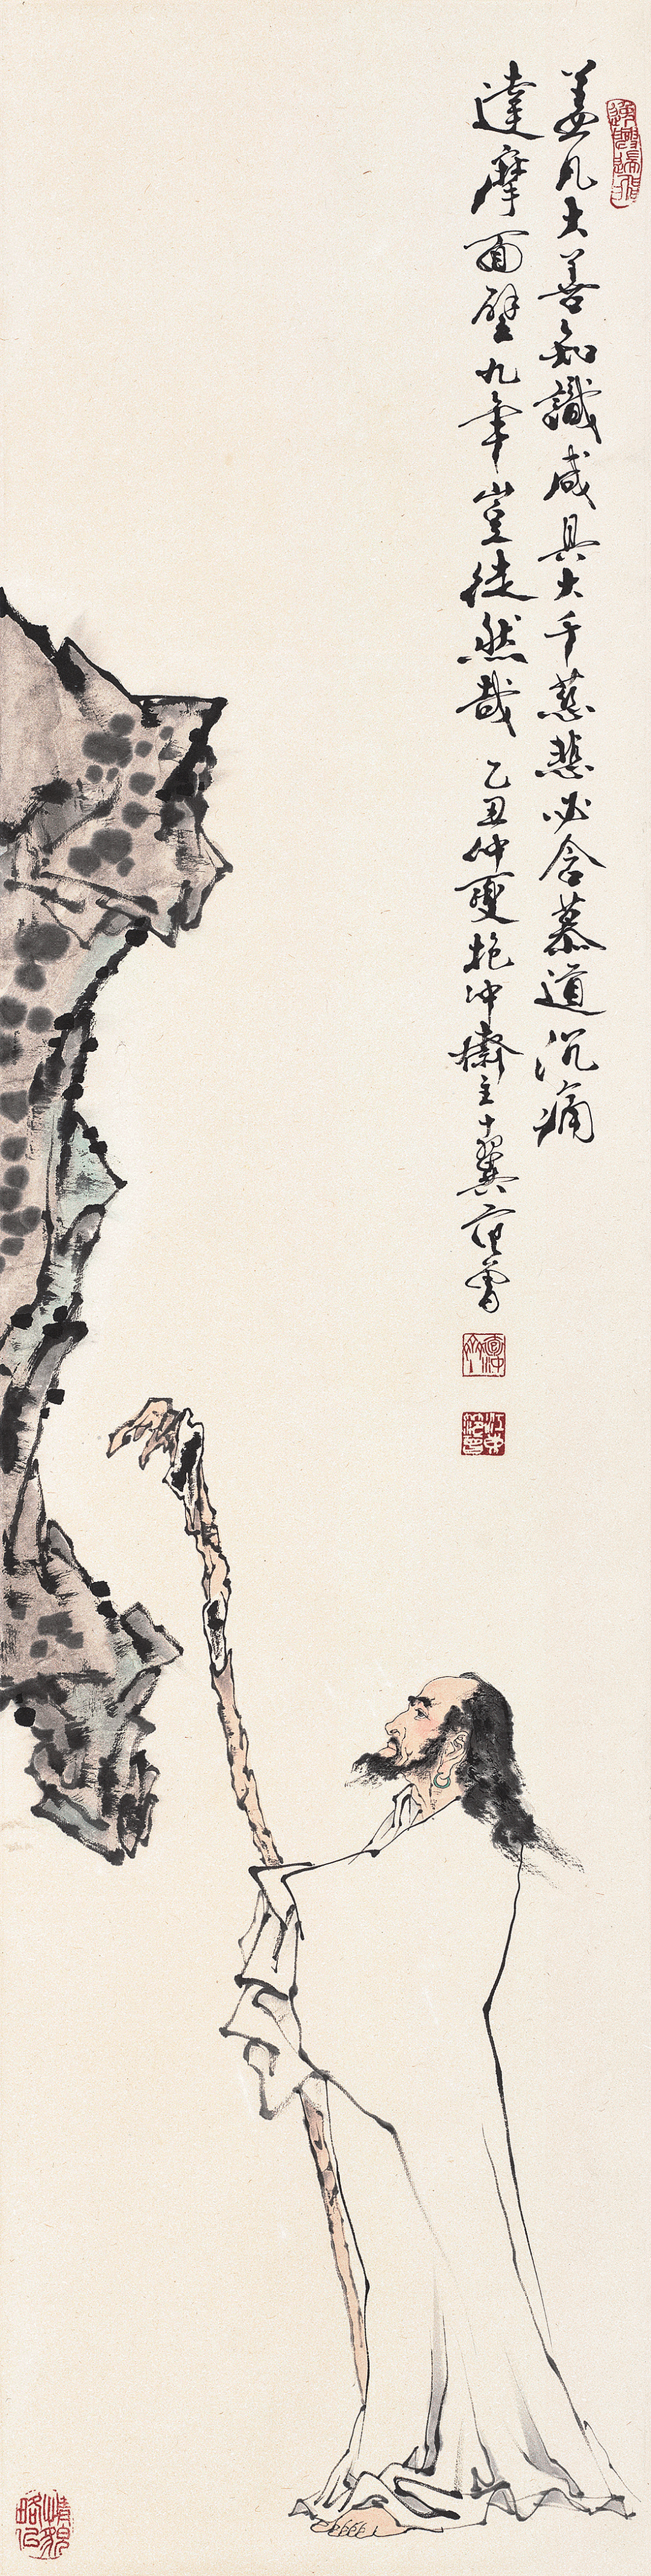 盖凡大善知識咸具大千慈悲必含慕道沉痛
達摩面壁九年豈徒然哉 乙丑仲夏抱冲齋主十翼范曾